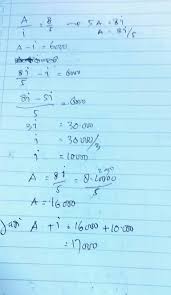 A/i = 8/5 → 5A = 8i
A = 8i/5
A - i = 6000
8i/5 - i = 6000
8i - 5i / 5 = 6000
3i = 30.000
i = 30.000/3
i = 10000
A = 8i/5 = 8.10000/5
A = 16000
Jadi A + i = 16000 + 10000
= 17000